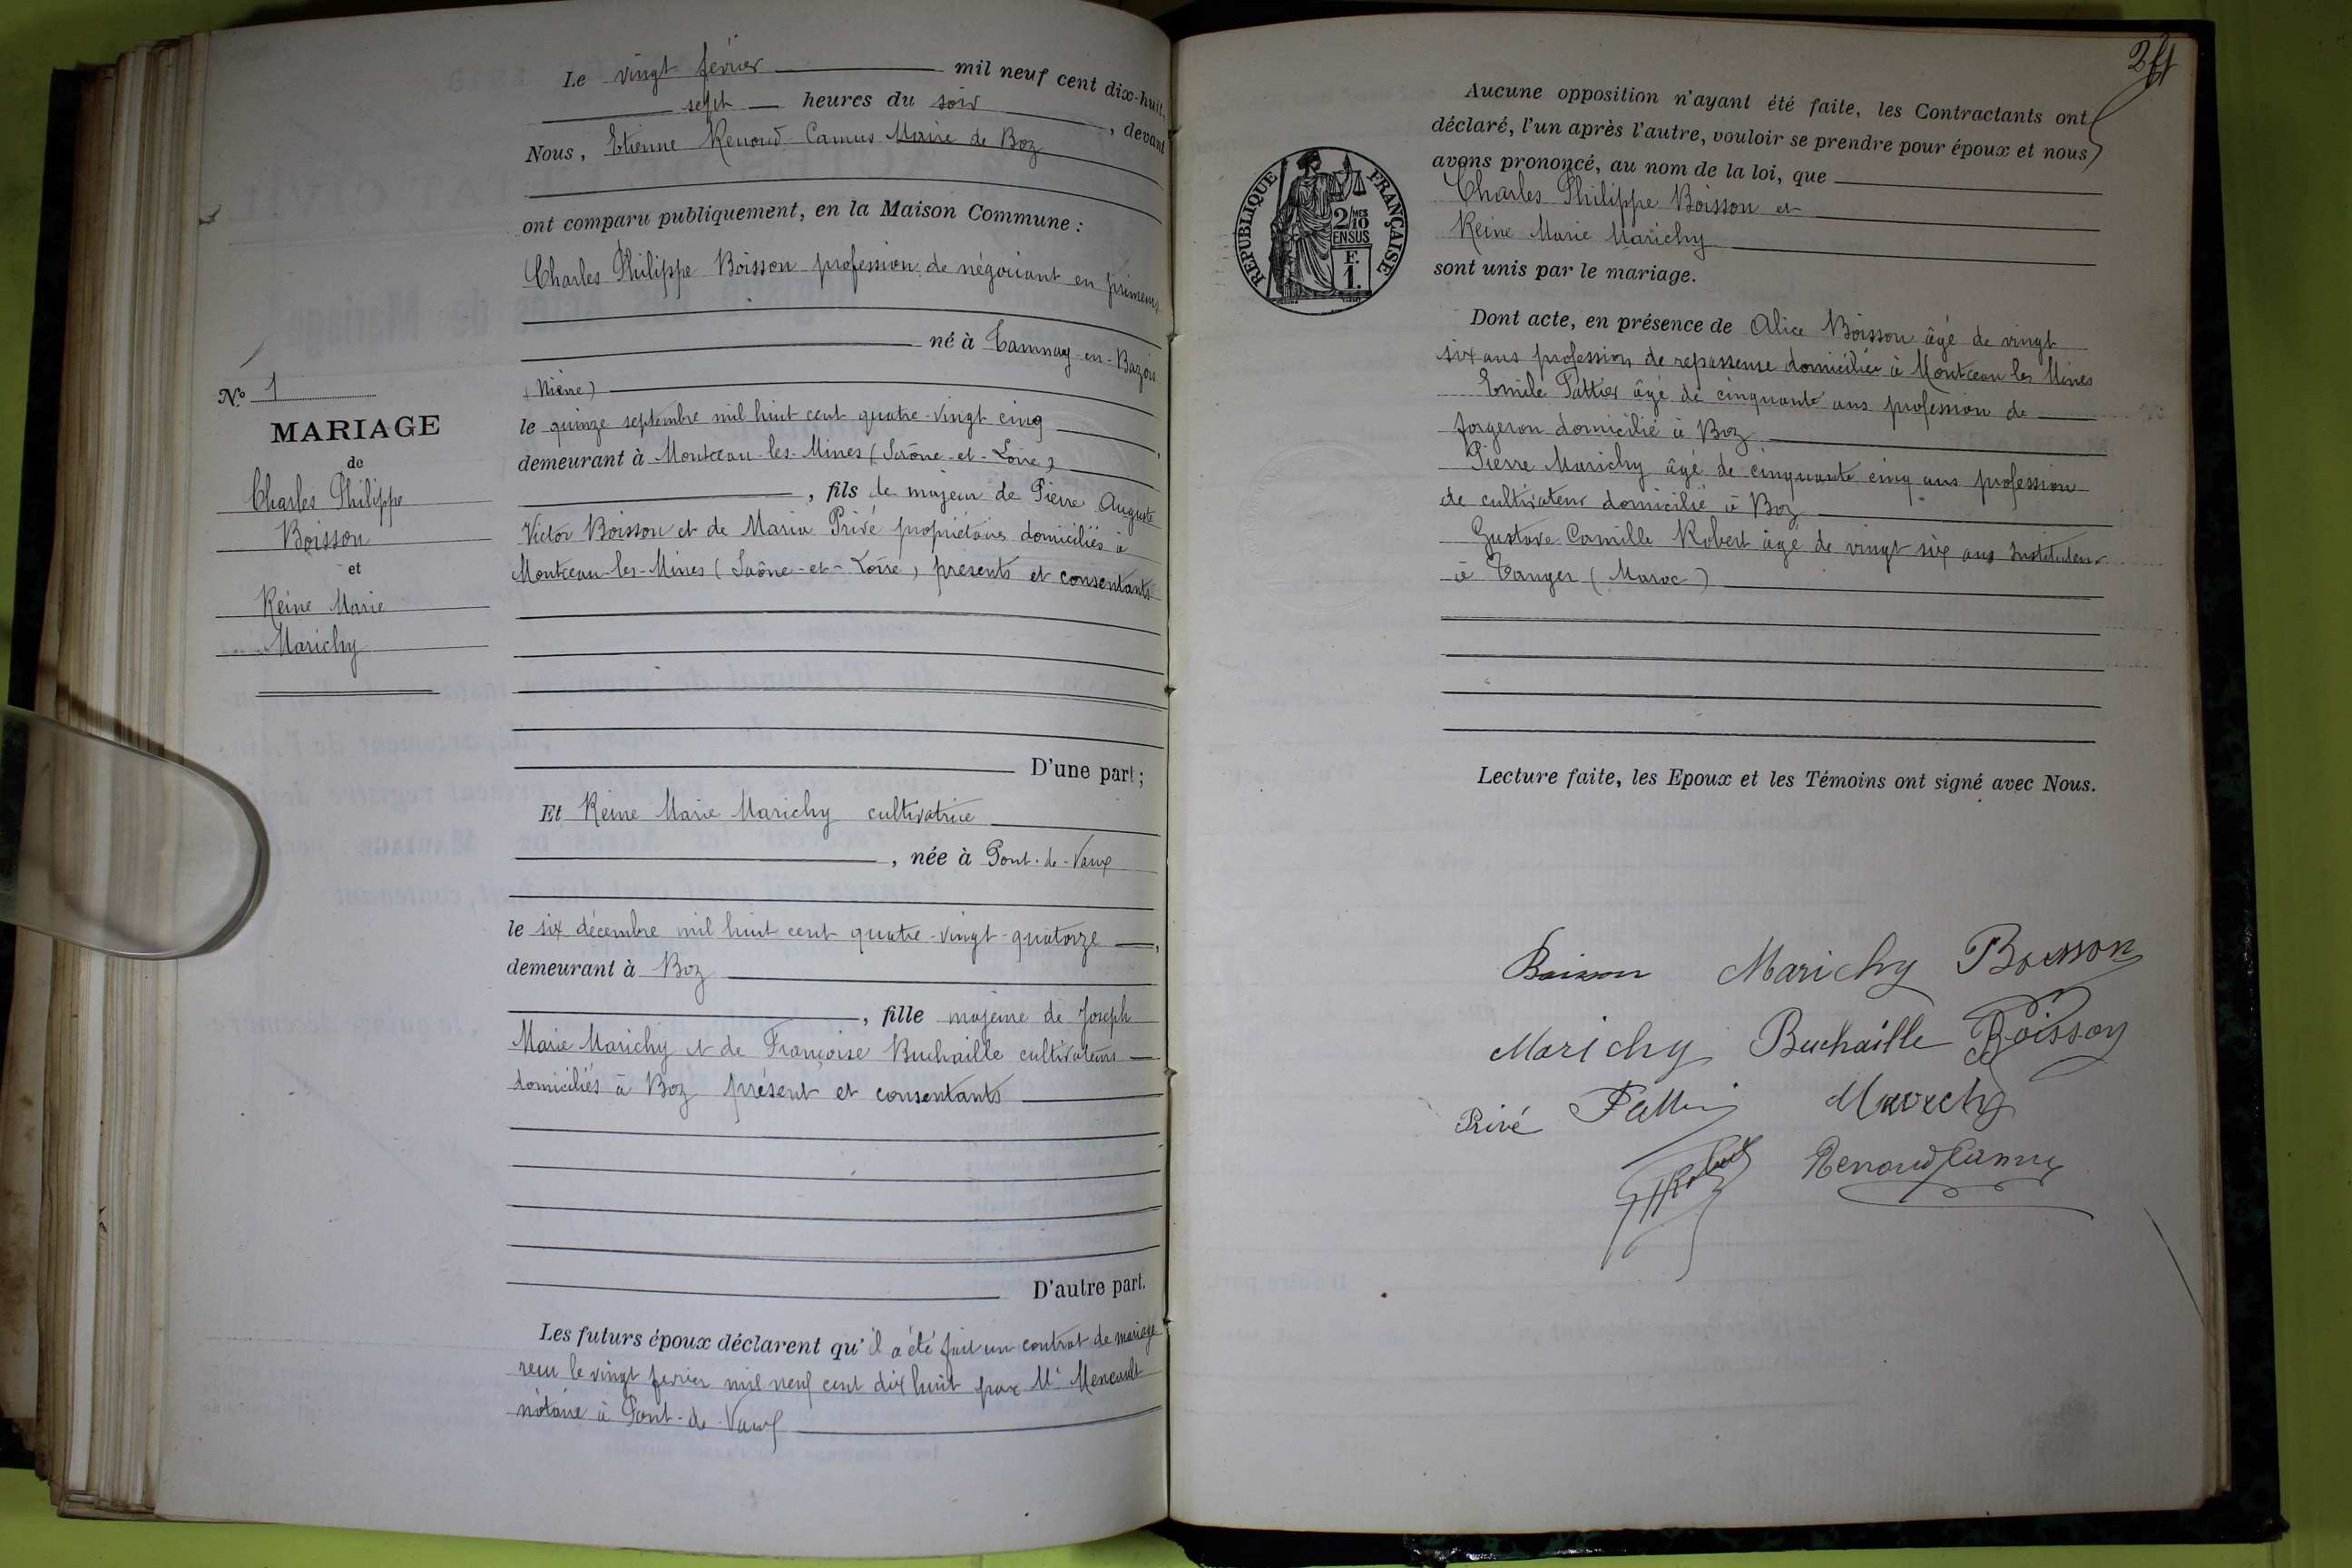 Le vingt février mil neuf cent dix-huit,
sept heures du soir, devant
Nous, Etienne Renoud Camus Maire de Boz
ont comparu publiquement, en la Maison Commune :
Charles Philippe Boisson profession de négociant en primeurs
né à Tamnay-en-Bazois
(Nièvre)
le quinze septembre mil huit cent quatre-vingt cinq,
demeurant à Montceau-les-Mines (Saône-et-Loire)
, fils de majeur de Pierre Auguste
Victor Boisson et de Maria Privé propriétaires domiciliés à
Montceau-les-Mines (Saône-et-Loire), présents et consentants
D'une part ;
Et Reine Marie Marichy cultivatrice
, née à Pont-de-Vaux
le six décembre mil huit cent quatre-vingt-quatorze,
demeurant à Boz
, fille majeure de Joseph
Marie Marichy et de Françoise Buchaille cultivateurs
domiciliés à Boz présent et consentants
D'autre part.
Les futurs époux déclarent qu'il a été fait un contrat de mariage
recu le vingt fevrier mil neuf cent dix huit par Me
notaire à Pont-de-Vaux
N.° 1
MARIAGE
de
Charles Philippe
Boisson
et
Reine Marie
Marichy
Aucune opposition n'ayant été faite, les Contractants ont
déclaré, l'un après l'autre, vouloir se prendre pour époux et nous
avons prononcé, au nom de la loi, que
Charles Philippe Boisson et
Reine Marie Marichy
sont unis par le mariage.
Dont acte, en présence de Alice Boisson âgé de vingt
six ans profession de repasseuse domiciliée à Montceau les Mines
Emile Pattier âgé de cinquante ans profession de
forgeron domicilié à Boz
Pierre Marichy âgé de cinquante cinq ans profession
de cultivateur domicilié à Boz
Gustave Camille Robert âgé de vingt six ans Instituteur
à Tanger (Maroc)
Lecture faite, les Epoux et les Témoins ont signé avec Nous.
Boisson Marichy Boisson
Marichy Buchaille Boisson
Privé Marichy
Robert Renoud Camus
RÉPUBLIQUE FRANÇAISE
2/10 MES
EN SUS
F.
1.